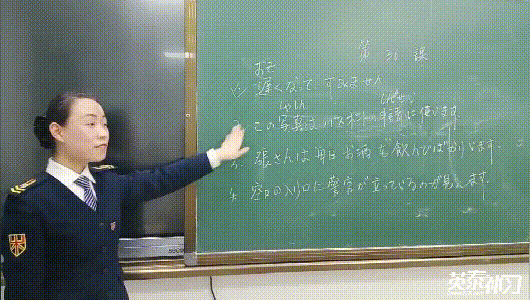 第36课
おそ
1. 遅くなって、すみません。
しゃしん
この写真はパスポートの申請に使います。
3. 張さんは毎日お酒を飲んでばかりいます。
4. 窓口の入り口に警官が立っているのが見えます。
英泰補习